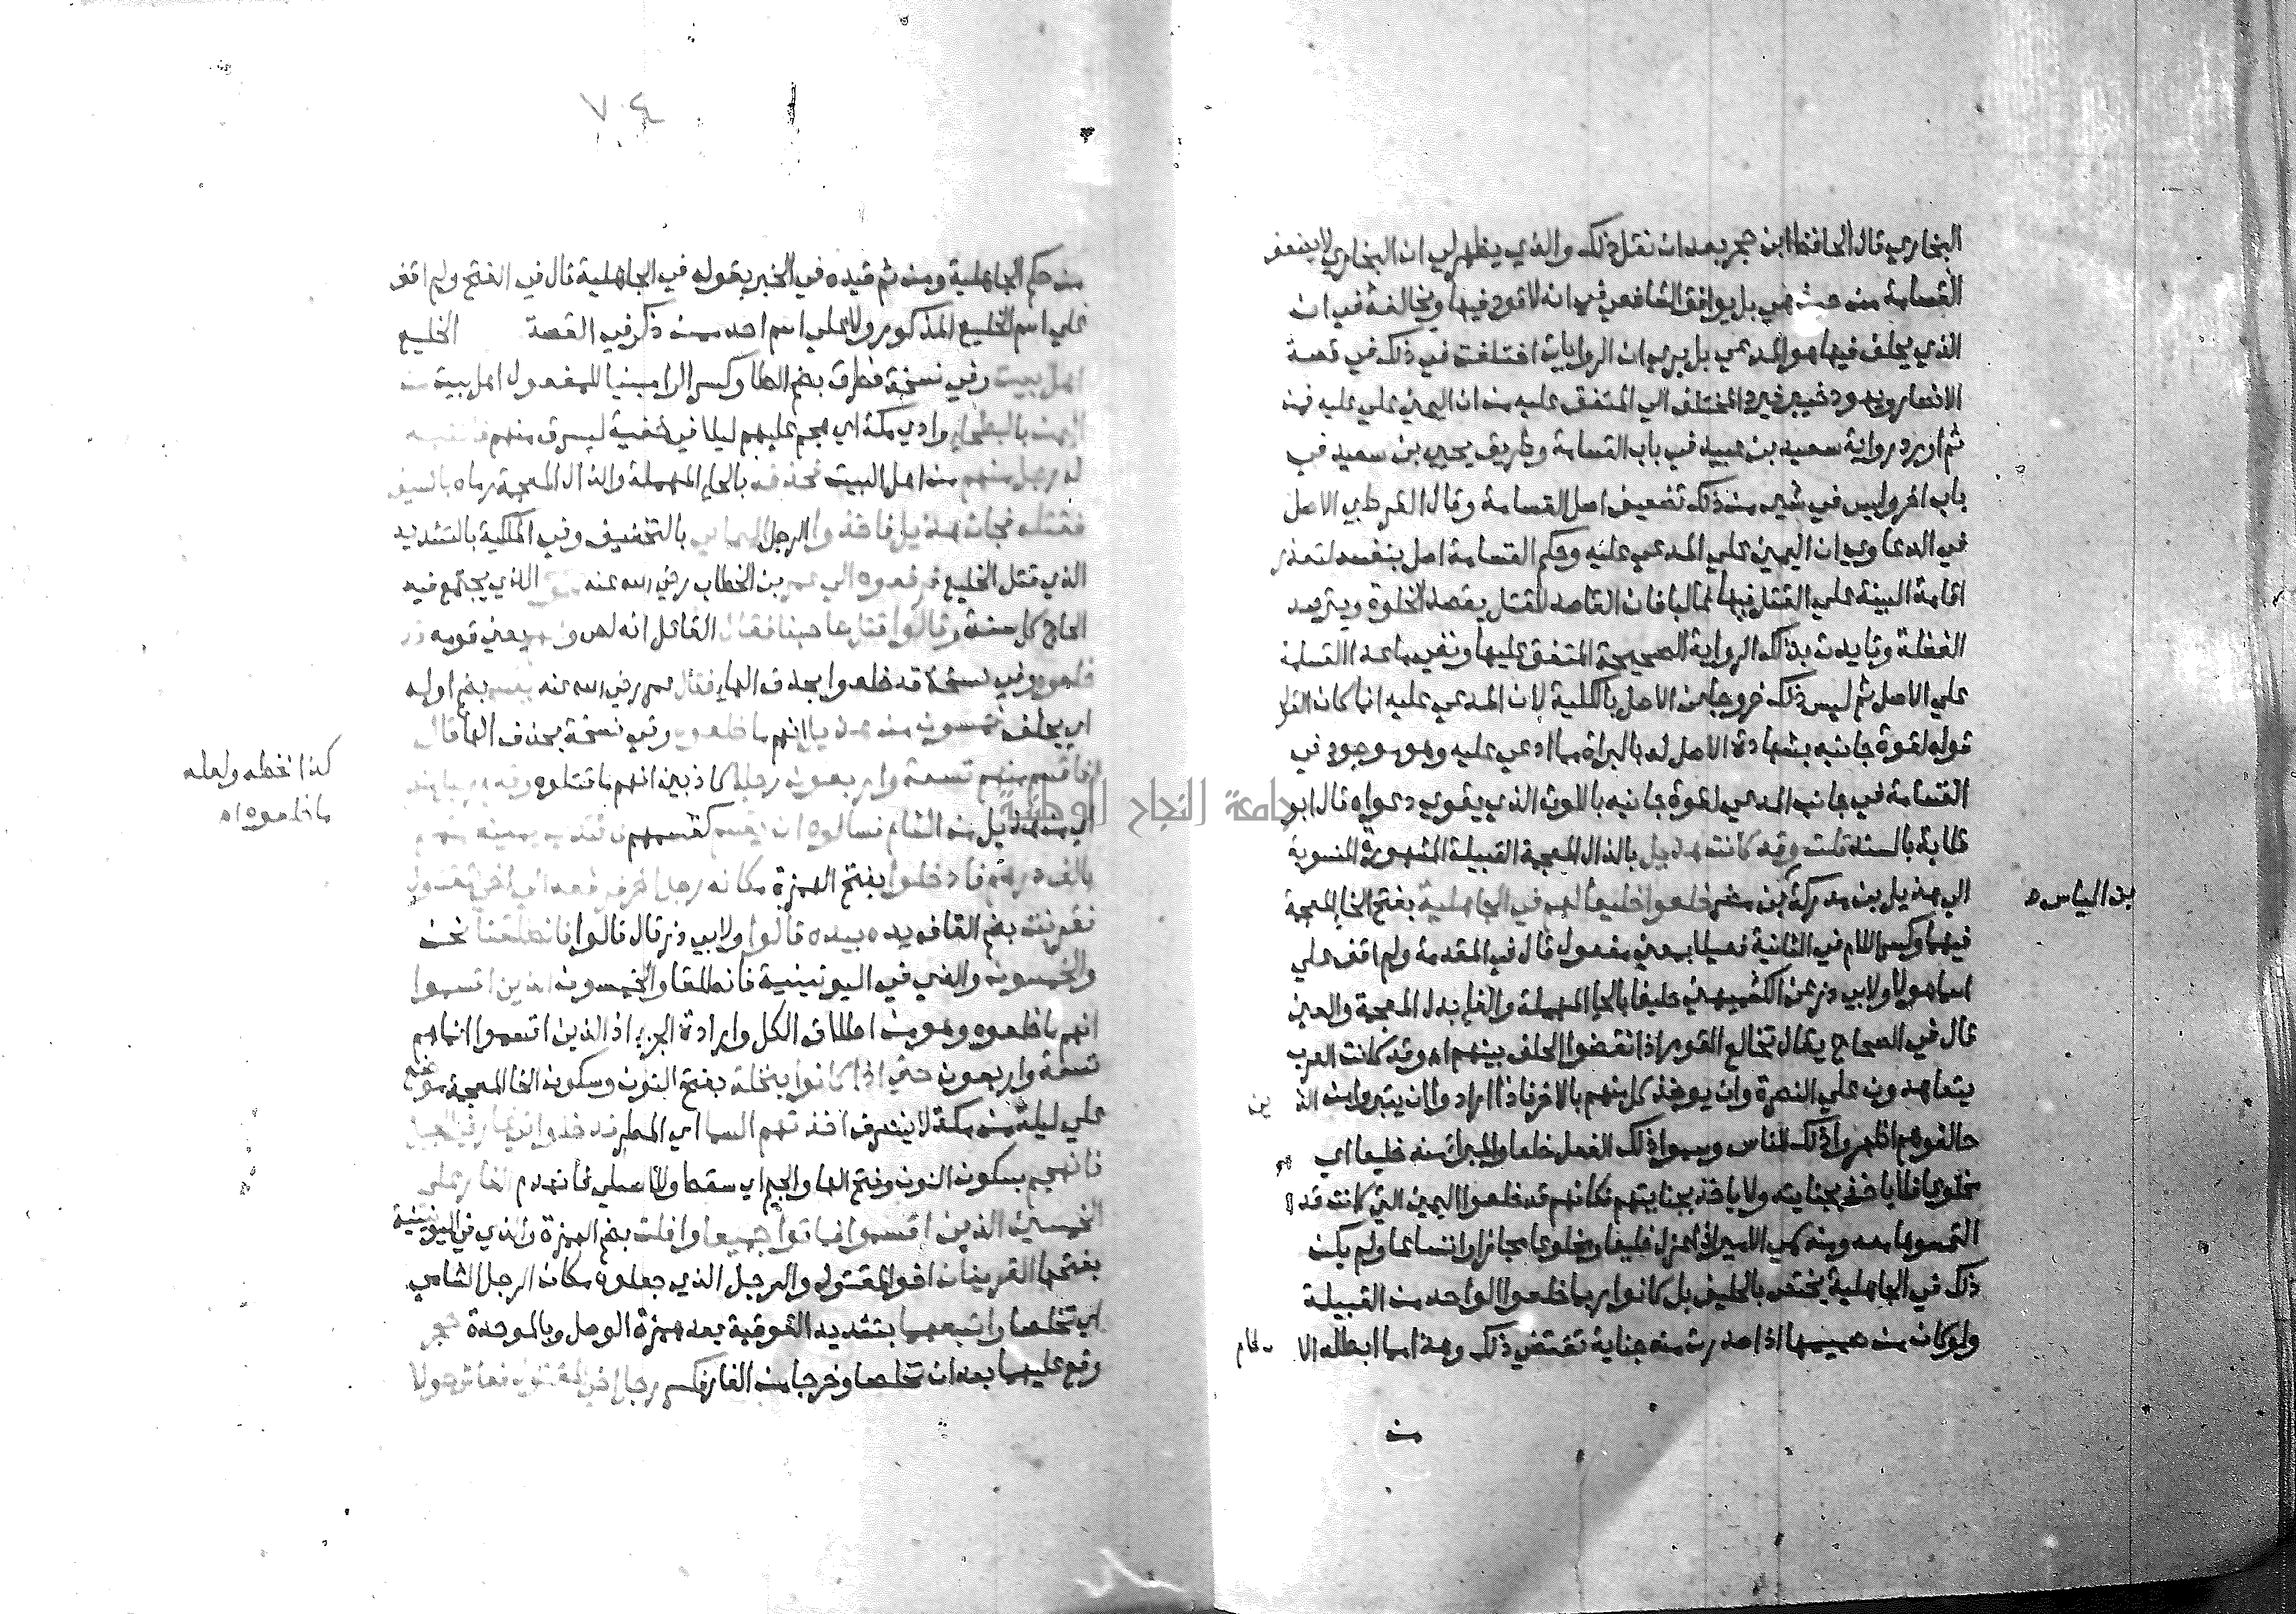 البخاري قال الحافظ ابن حجر بعد ان نقل ذلك والذي يظهر لي ان البخاري لا يضعف
القسامة من حيث هي بل يوافق الشافعي في انه لا قود فيها ويخالفه في ان
الذي يحلف فيها هو المدعي بل يري ان الروايات اختلفت في ذلك في قصة
الانصار ويهود خيبر فيرد المختلف الي المتفق عليه من ان اليمين علي المدعي عليه فمن
ثم اورد رواية سعيد بن عبيد في باب القسامة وطريق يحيي بن سعيد في
باب اخر وليس في شي من ذلك تضعيف اصل القسامة وقال القرطبي الاصل
في الدعاوي ان اليمين علي المدعي عليه وحكم القسامة اصل بنفسه لتعذر
اقامة البينة علي القتل فيها غالبا فان القاصد للقتل يقصد الخلوة ويترصد
الغفلة وتايدت بذلك الرواية الصحيحة المتفق عليها وبقي ما عدا القسامة
علي الاصل ثم ليس ذلك خروجا عن الاصل بالكلية لان المدعي عليه انما كان القول
قوله لقوة جانبه بشهادة الاصل له بالبراة مما ادعي عليه وهو موجود في
القسامة في جانب المدعي لقوة جانبه باللوث الذي يقوي دعواه قال ابو
قلابة بالسند قلت وقد كانت هذيل بالذال المعجمة القبيلة المشهورة المنسوبة
الي هذيل بن مدركة بن مضر خلعوا خليعا لهم في الجاهلية بفتح الخا المعجمة
بن الياس
فيهما وكسر اللام في الثانية فعيلا بمعني مفعول قال في المقدمة ولم اقف علي
اسما هولا ولابي ذر عن الكشميهني حليفا بالحا المهملة والفا بدل المعجمة والعين
قال في الصحاح يقال تخالع القوم اذا نقضوا الحلف بينهم اه وقد كانت العرب
يتعاهدون علي النصرة وان يوخذ كل منهم بالاخر فاذا ارادوا ان يتبروا من الذ ين
حالفوهم اظهروا ذلك للناس وسموا ذلك الفعل خلعا والمبرا منه خليعا اي
مخلوعا فلا ياخذ بجنايته ولا ياخذ بجنايتهم فكانهم قد خلعوا اليمين التي كانت قد
التمسوها معه ومنه سمي الامير اذا عزل خليعا ومخلوعا مجازا واتساعا ولم يكن
ذلك في الجاهلية يختص بالحليف بل كانوا ربما خلعوا الواحد من القبيلة
ولو كان من صميمها اذا صدرت منه جناية تقتضي ذلك وهذا مما ابطله الا سلام
من
٧٠٤
من حكم الجاهلية ومن ثم قيده في الخبر بقوله في الجاهلية قال في الفتح ولم اقف
علي اسم الخليع المذكور ولا علي اسم احد ممن ذكر في القصة الخليع
اهل بيت وفي نسخة فطرق بضم الطا وكسر الرا مبنيا للمفعول اهل بيت من
اليمن بالبطحا وادي مكة اي هجم عليهم ليلا في خفية ليسرق منهم فانتبه
له رجل منهم من اهل البيت فحذفه بالحا المهملة والذال المعجمة رماه بالسيف
فقتله فجات هذيل فاخذوا الرجل اليماني بالتخفيف وفي الملكية بالتشديد
الذي قتل الخليع فرفعوه الي عمر بن الخطاب رضي الله عنه الذي يجتمع فيه
الحاج كل سنة وقالوا قتل صاحبنا فقال القاتل انه لص يعني قومه قد
خلعوه وفي نسخة قد خلعوا بحذف الهاء فقال عمر رضي الله عنه يقسم بضم اوله
اي يحلف خمسون من هذيل انهم ما خلعوه وفي نسخة بحذف الها قال
كذا بخطه ولعله
ما خلعوه اه
فاقسم منهم تسعة واربعون رجلا كاذبين انهم ما قتلوه
اي من هذيل من الشام فسالوه ان يقسم كقسمهم فافتدي يمينه منهم
بالف درهم فادخلوا بفتح الهمزة مكانه رجلا اخر فدفعه الي اخي المقتول
فقرنت بضم القاف يده بيده قالوا ولابي ذر قال قالوا فانطلقنا نحن
والخمسون والذي في اليونينية فانطلقا والخمسون الذين اقسموا
انهم ما خلعوه وهو من اطلاق الكل وارادة الجزء اذ الذين اقسموا انما هم
تسعة واربعون حتي اذا كانوا بنخلة بفتح النون وسكون الخا المعجمة موضع
علي ليلة من مكة لا ينصرف اخذتهم السما اي المطر فدخلوا في غار في الجبل
فانهجم بسكون النون وفتح الها والجيم اي سقط وللاصيلي فانهدم الغار علي
الخمسين الذين اقسموا فماتوا جميعا وافلت بضم الهمزة والذي في اليونينية
بفتحها القرينان اخو المقتول والرجل الذي جعلوه مكان الرجل الشامي
اي تخلصا واتبعهما بتشديد الفوقية بعد همزة الوصل وبالموحدة حجر
وقع عليهما بعد ان تخلصا وخرجا من الغار فكسر رجل اخي المقتول فعاش حولا
جامعة النجاح الوطنية